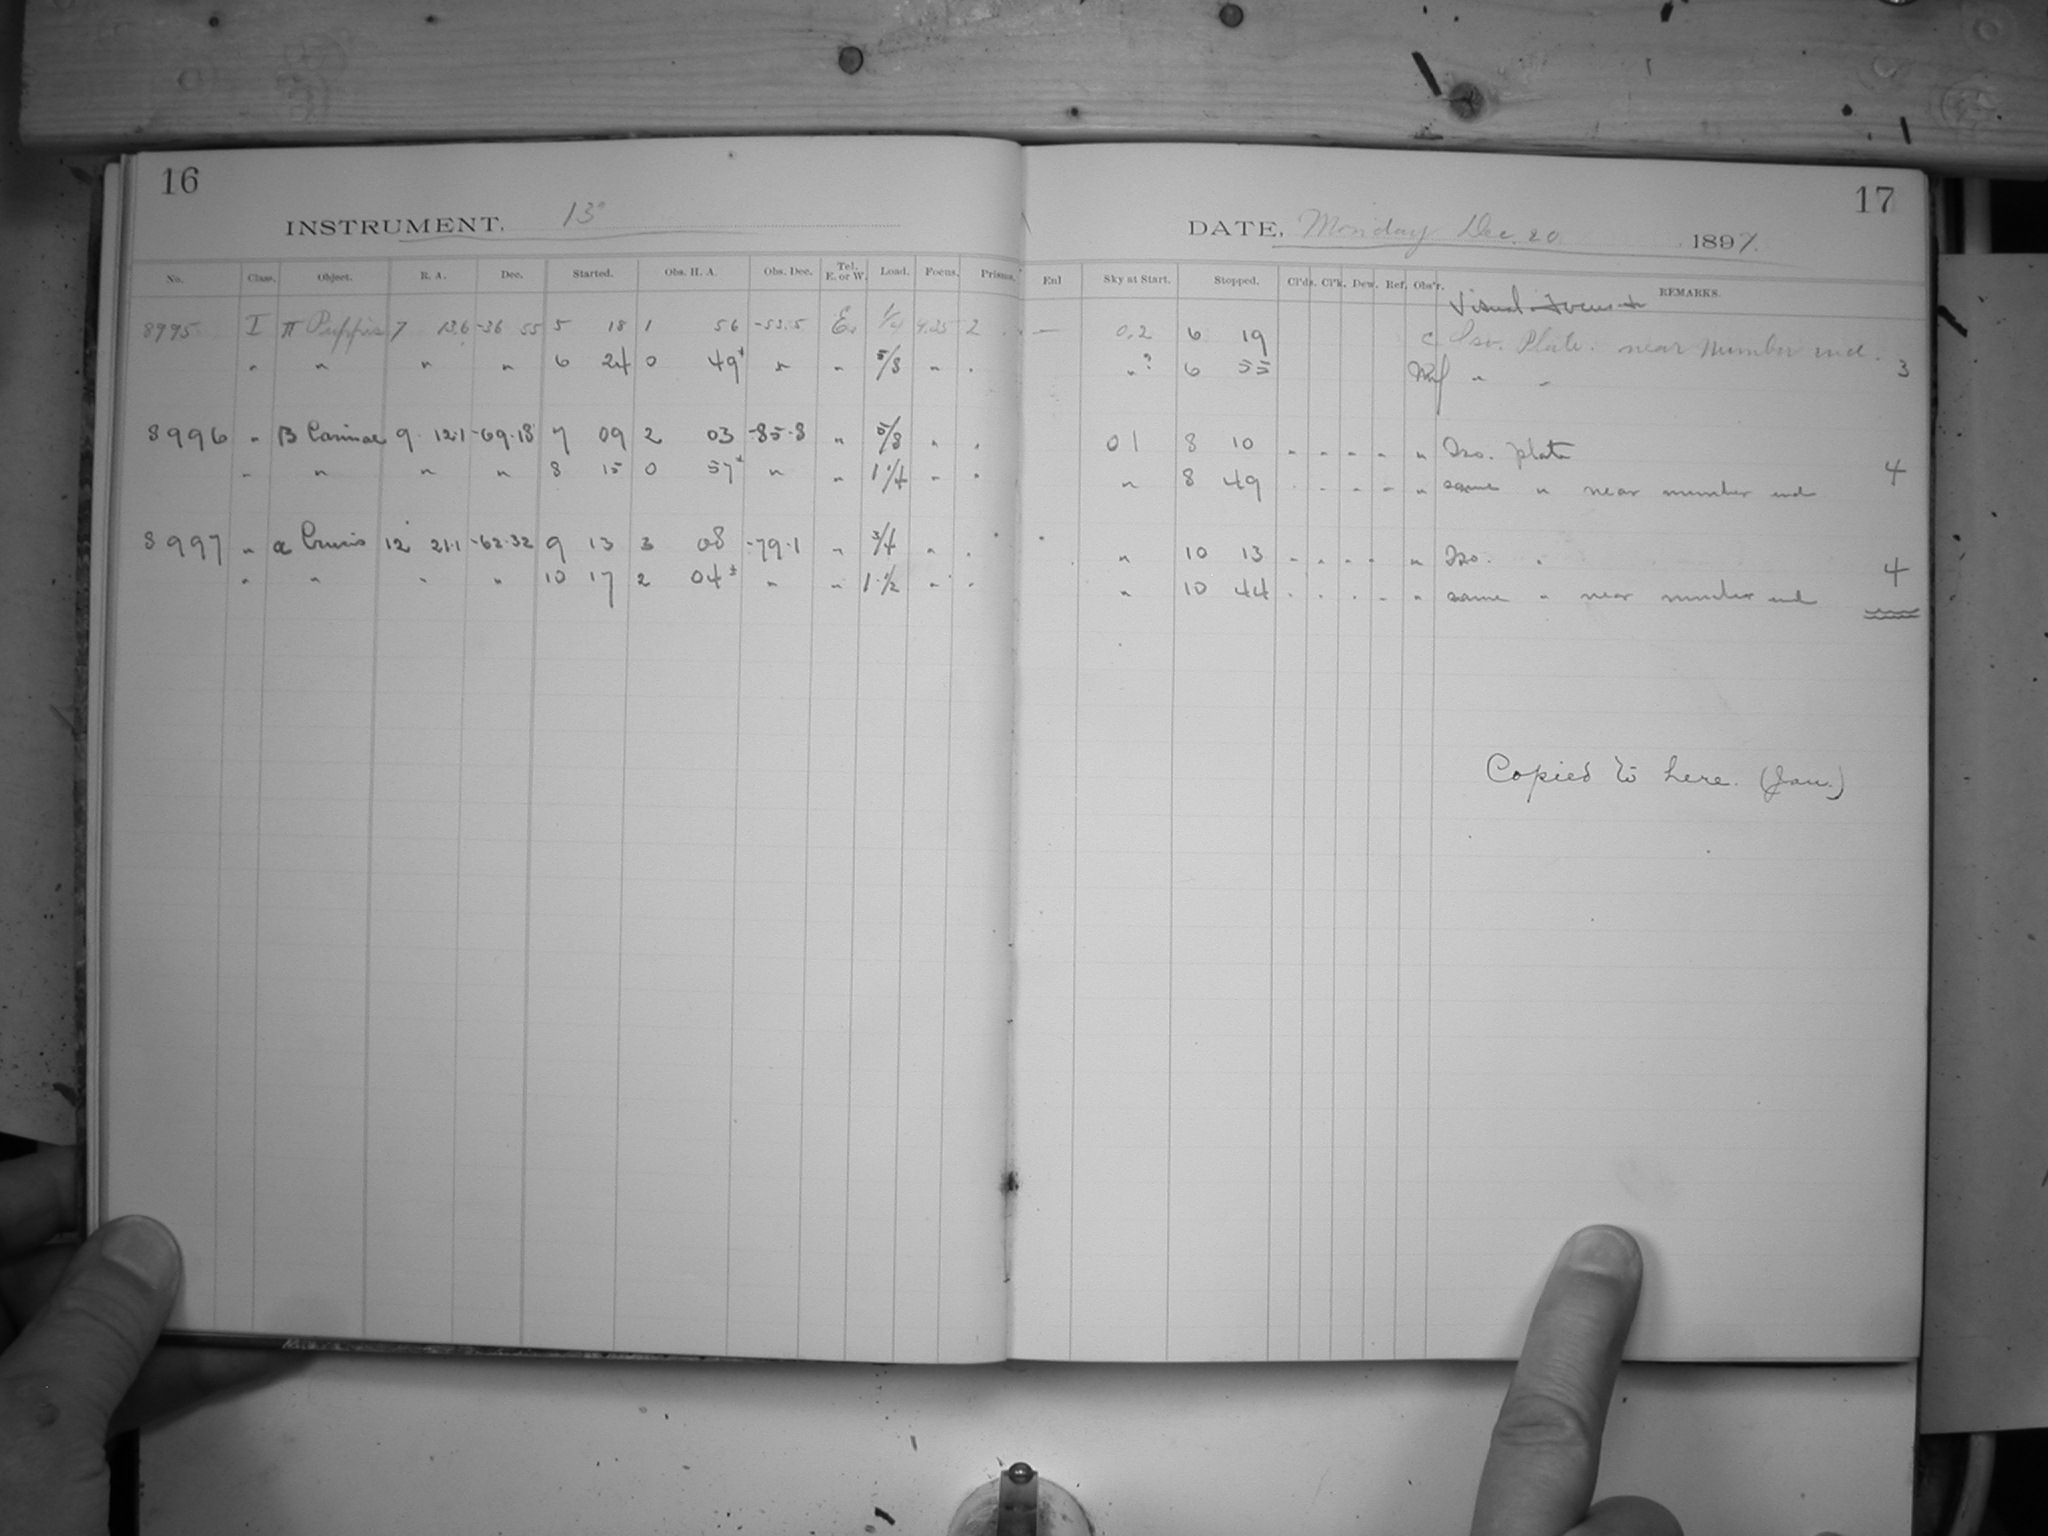 16
INSTRUMENT. 13"
No. Class. Object. R. A. Dec. Started. Obs. H. A. Obs. Dec. Tel. E. or W. Load. Focus. Prisms.
8995 I π Puppis 7 13.6 -36 55 5 18 1 56 -53.5 E. 1/4 9.25 2
" " " " 6 24 0 49* " " 5/8 " "
8996 " β Carinae 9 12.1 -69.18 7 09 2 03 -85.8 " 5/8 " "
" " " " 8 15 0 57* " " 1 1/4 " "
8997 " α Crucis 12 21.1 -62.32 9 13 3 08 -79.1 " 3/4 " "
" " " " 10 17 2 04± " " 1 1/2 " "
17
DATE, Monday Dec. 20 1897.
Enl Sky at Start. Stopped. Cl'ds. Cl'k. Dew. Ref. Obs'r. REMARKS.
Visual focus
— 0.2 6 19 C Iso. Plate. near number end.
" ? 6 55 " " 3
01 8 10 " " " " " Iso. plate
" 8 49 " " " " " same " near number end 4
" 10 13 " " " " " Iso. "
" 10 44 " " " " " same " near number end 4
Copied to here. (Jan.)